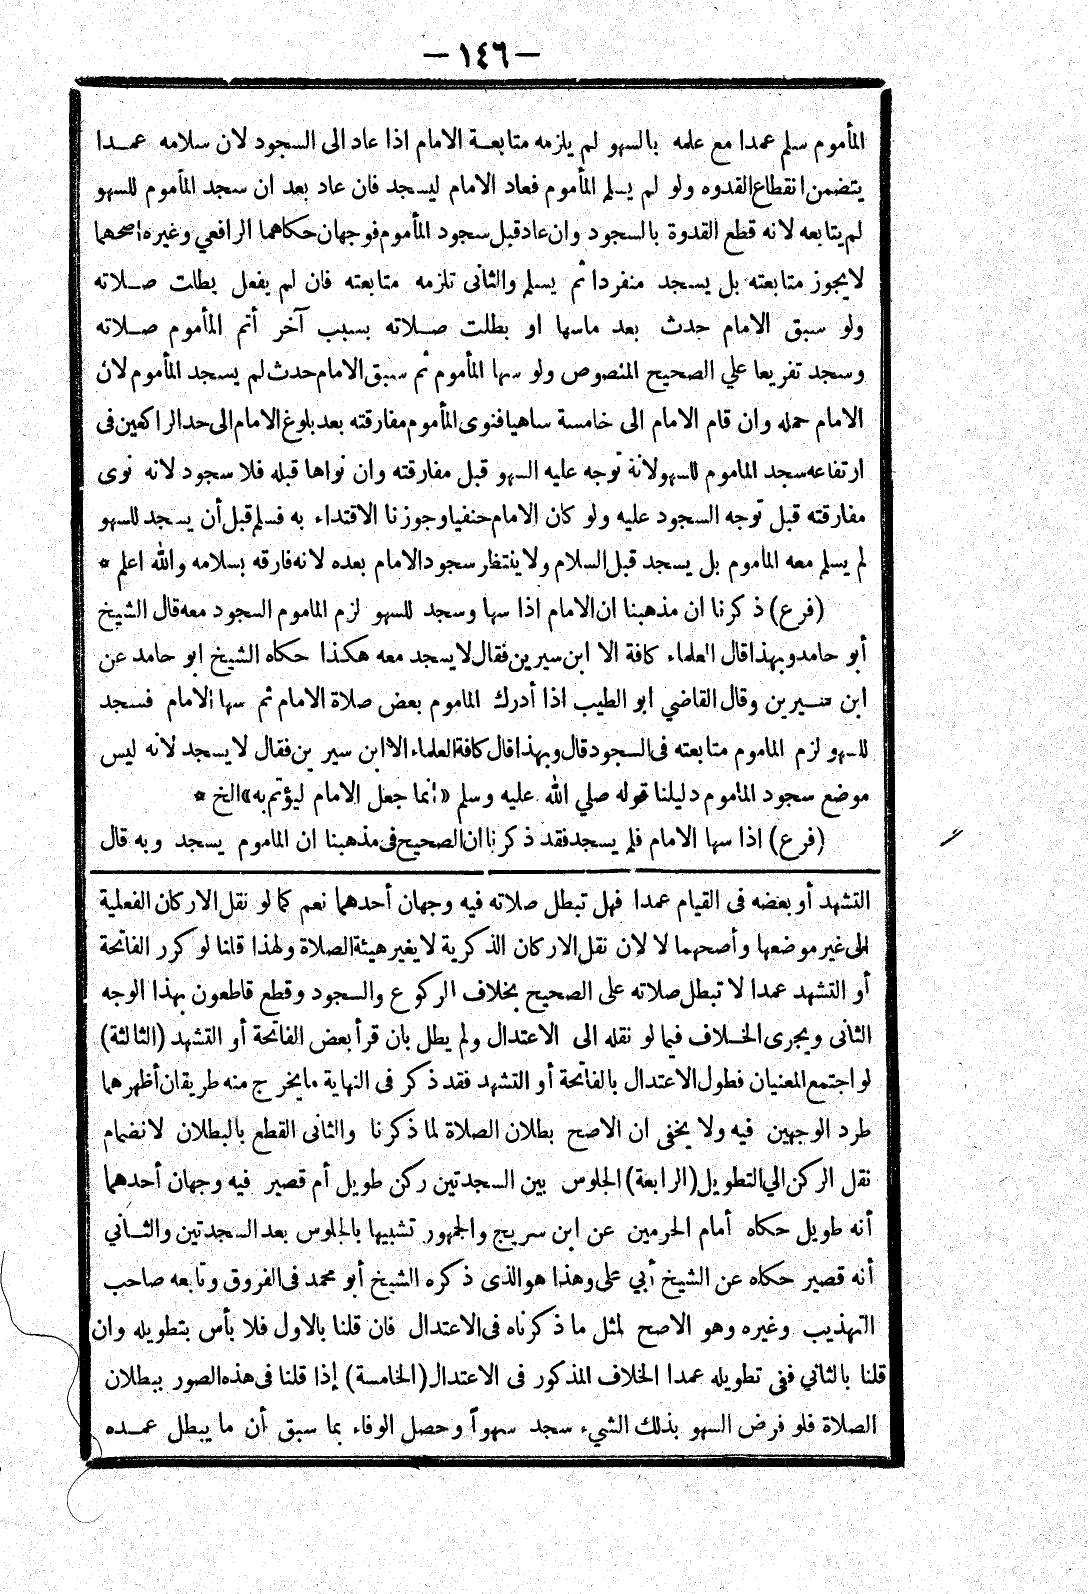 — ١٤٦ —
المأموم سلم عمدا مع علمه بالسهو لم يلزمه متابعة الامام اذا عاد الى السجود لان سلامه عمدا
يتضمن انقطاع القدوه ولو لم يسلم المأموم فعاد الامام ليسجد فان عاد بعد ان سجد المأموم للسهو
لم يتابعه لانه قطع القدوة بالسجود وان عاد قبل سجود المأموم فوجهان حكاهما الرافعي وغيره اصحهما
لا يجوز متابعته بل يسجد منفردا ثم يسلم والثانى تلزمه متابعته فان لم يفعل بطلت صلاته
ولو سبق الامام حدث بعد ماسها او بطلت صلاته بسبب آخر أتم المأموم صلاته
وسجد تفريعا علي الصحيح المنصوص ولو سها المأموم ثم سبق الامام حدث لم يسجد المأموم لان
الامام حمله وان قام الامام الى خامسة ساهيا فنوى المأموم مفارقته بعد بلوغ الامام الى حد الراكعين فى
ارتفاعه سجد الماموم للسهو لانة توجه عليه السهو قبل مفارقته وان نواها قبله فلا سجود لانه نوى
مفارقته قبل توجه السجود عليه ولو كان الامام حنفيا وجوزنا الاقتداء به فسلم قبل أن يسجد للسهو
لم يسلم معه المأموم بل يسجد قبل السلام ولا ينتظر سجود الامام بعده لانه فارقه بسلامه والله اعلم *
(فرع) ذكرنا ان مذهبنا ان الامام اذا سها وسجد للسهو لزم الماموم السجود معه قال الشيخ
أبو حامد وبهذا قال العلماء كافة الا ابن سيرين فقال لا يسجد معه هكذا حكاه الشيخ ابو حامد عن
ابن سيرين وقال القاضي ابو الطيب اذا أدرك الماموم بعض صلاة الامام ثم سها الامام فسجد
للسهو لزم الماموم متابعته فى السجود قال وبهذا قال كافة العلماء الا ابن سيرين فقال لا يسجد لانه ليس
موضع سجود المأموم دليلنا قوله صلي الله عليه وسلم «انما جعل الامام ليؤتم به» الخ *
(فرع) اذا سها الامام فلم يسجد فقد ذكرنا ان الصحيح فى مذهبنا ان الماموم يسجد وبه قال
التشهد أو بعضه فى القيام عمدا فهل تبطل صلاته فيه وجهان أحدهما نعم كما لو نقل الاركان الفعلية
الى غير موضعها وأصحهما لا لان نقل الاركان الذكرية لا يغير هيئة الصلاة ولهذا قلنا لو كرر الفاتحة
أو التشهد عمدا لا تبطل صلاته على الصحيح بخلاف الركوع والسجود وقطع قاطعون بهذا الوجه
الثانى ويجرى الخلاف فيما لو نقله الى الاعتدال ولم يطل بان قرأ بعض الفاتحة أو التشهد (الثالثة)
لو اجتمع المعنيان فطول الاعتدال بالفاتحة أو التشهد فقد ذكر فى النهاية ما يخرج منه طريقان أظهرهما
طرد الوجهين فيه ولا يخفى ان الاصح بطلان الصلاة لما ذكرنا والثانى القطع بالبطلان لانضمام
نقل الركن الي التطويل (الرابعة) الجلوس بين السجدتين ركن طويل أم قصير فيه وجهان أحدهما
أنه طويل حكاه أمام الحرمين عن ابن سريج والجمهور تشبيها بالجلوس بعد السجدتين والثاني
أنه قصير حكاه عن الشيخ أبي على وهذا هو الذى ذكره الشيخ أبو محمد فى الفروق وتابعه صاحب
التهذيب وغيره وهو الاصح لمثل ما ذكرناه فى الاعتدال فان قلنا بالاول فلا بأس بتطويله وان
قلنا بالثاني ففى تطويله عمدا الخلاف المذكور فى الاعتدال (الخامسة) إذا قلنا فى هذه الصور ببطلان
الصلاة فلو فرض السهو بذلك الشيء سجد سهواً وحصل الوفاء بما سبق أن ما يبطل عمده